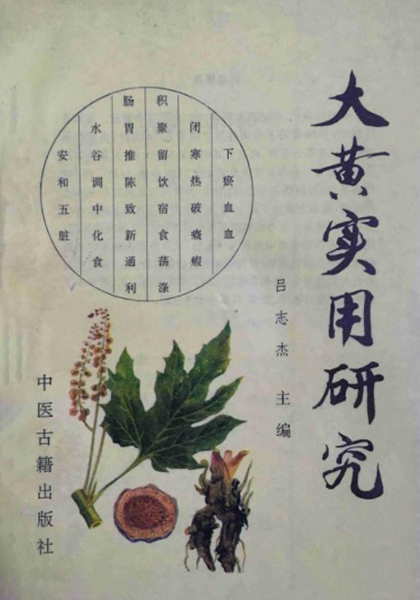 大黄实用研究
吕志杰 主编
下瘀血血
闭寒热破癥瘕
积聚留饮宿食荡涤
肠胃推陈致新通利
水谷调中化食
安和五脏
中医古籍出版社